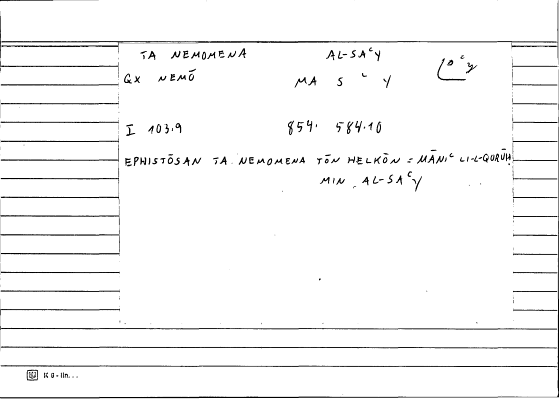 TA NEMOMENA AL-SAᶜY
QX NEMŌ MA S ᶜ Y
I 103.9 854. 584.10
EPHISTŌSAN TA NEMOMENA TŌN HELKŌN = MĀNIᶜ LI-L-QURŪḤ
MIN AL-SAᶜY